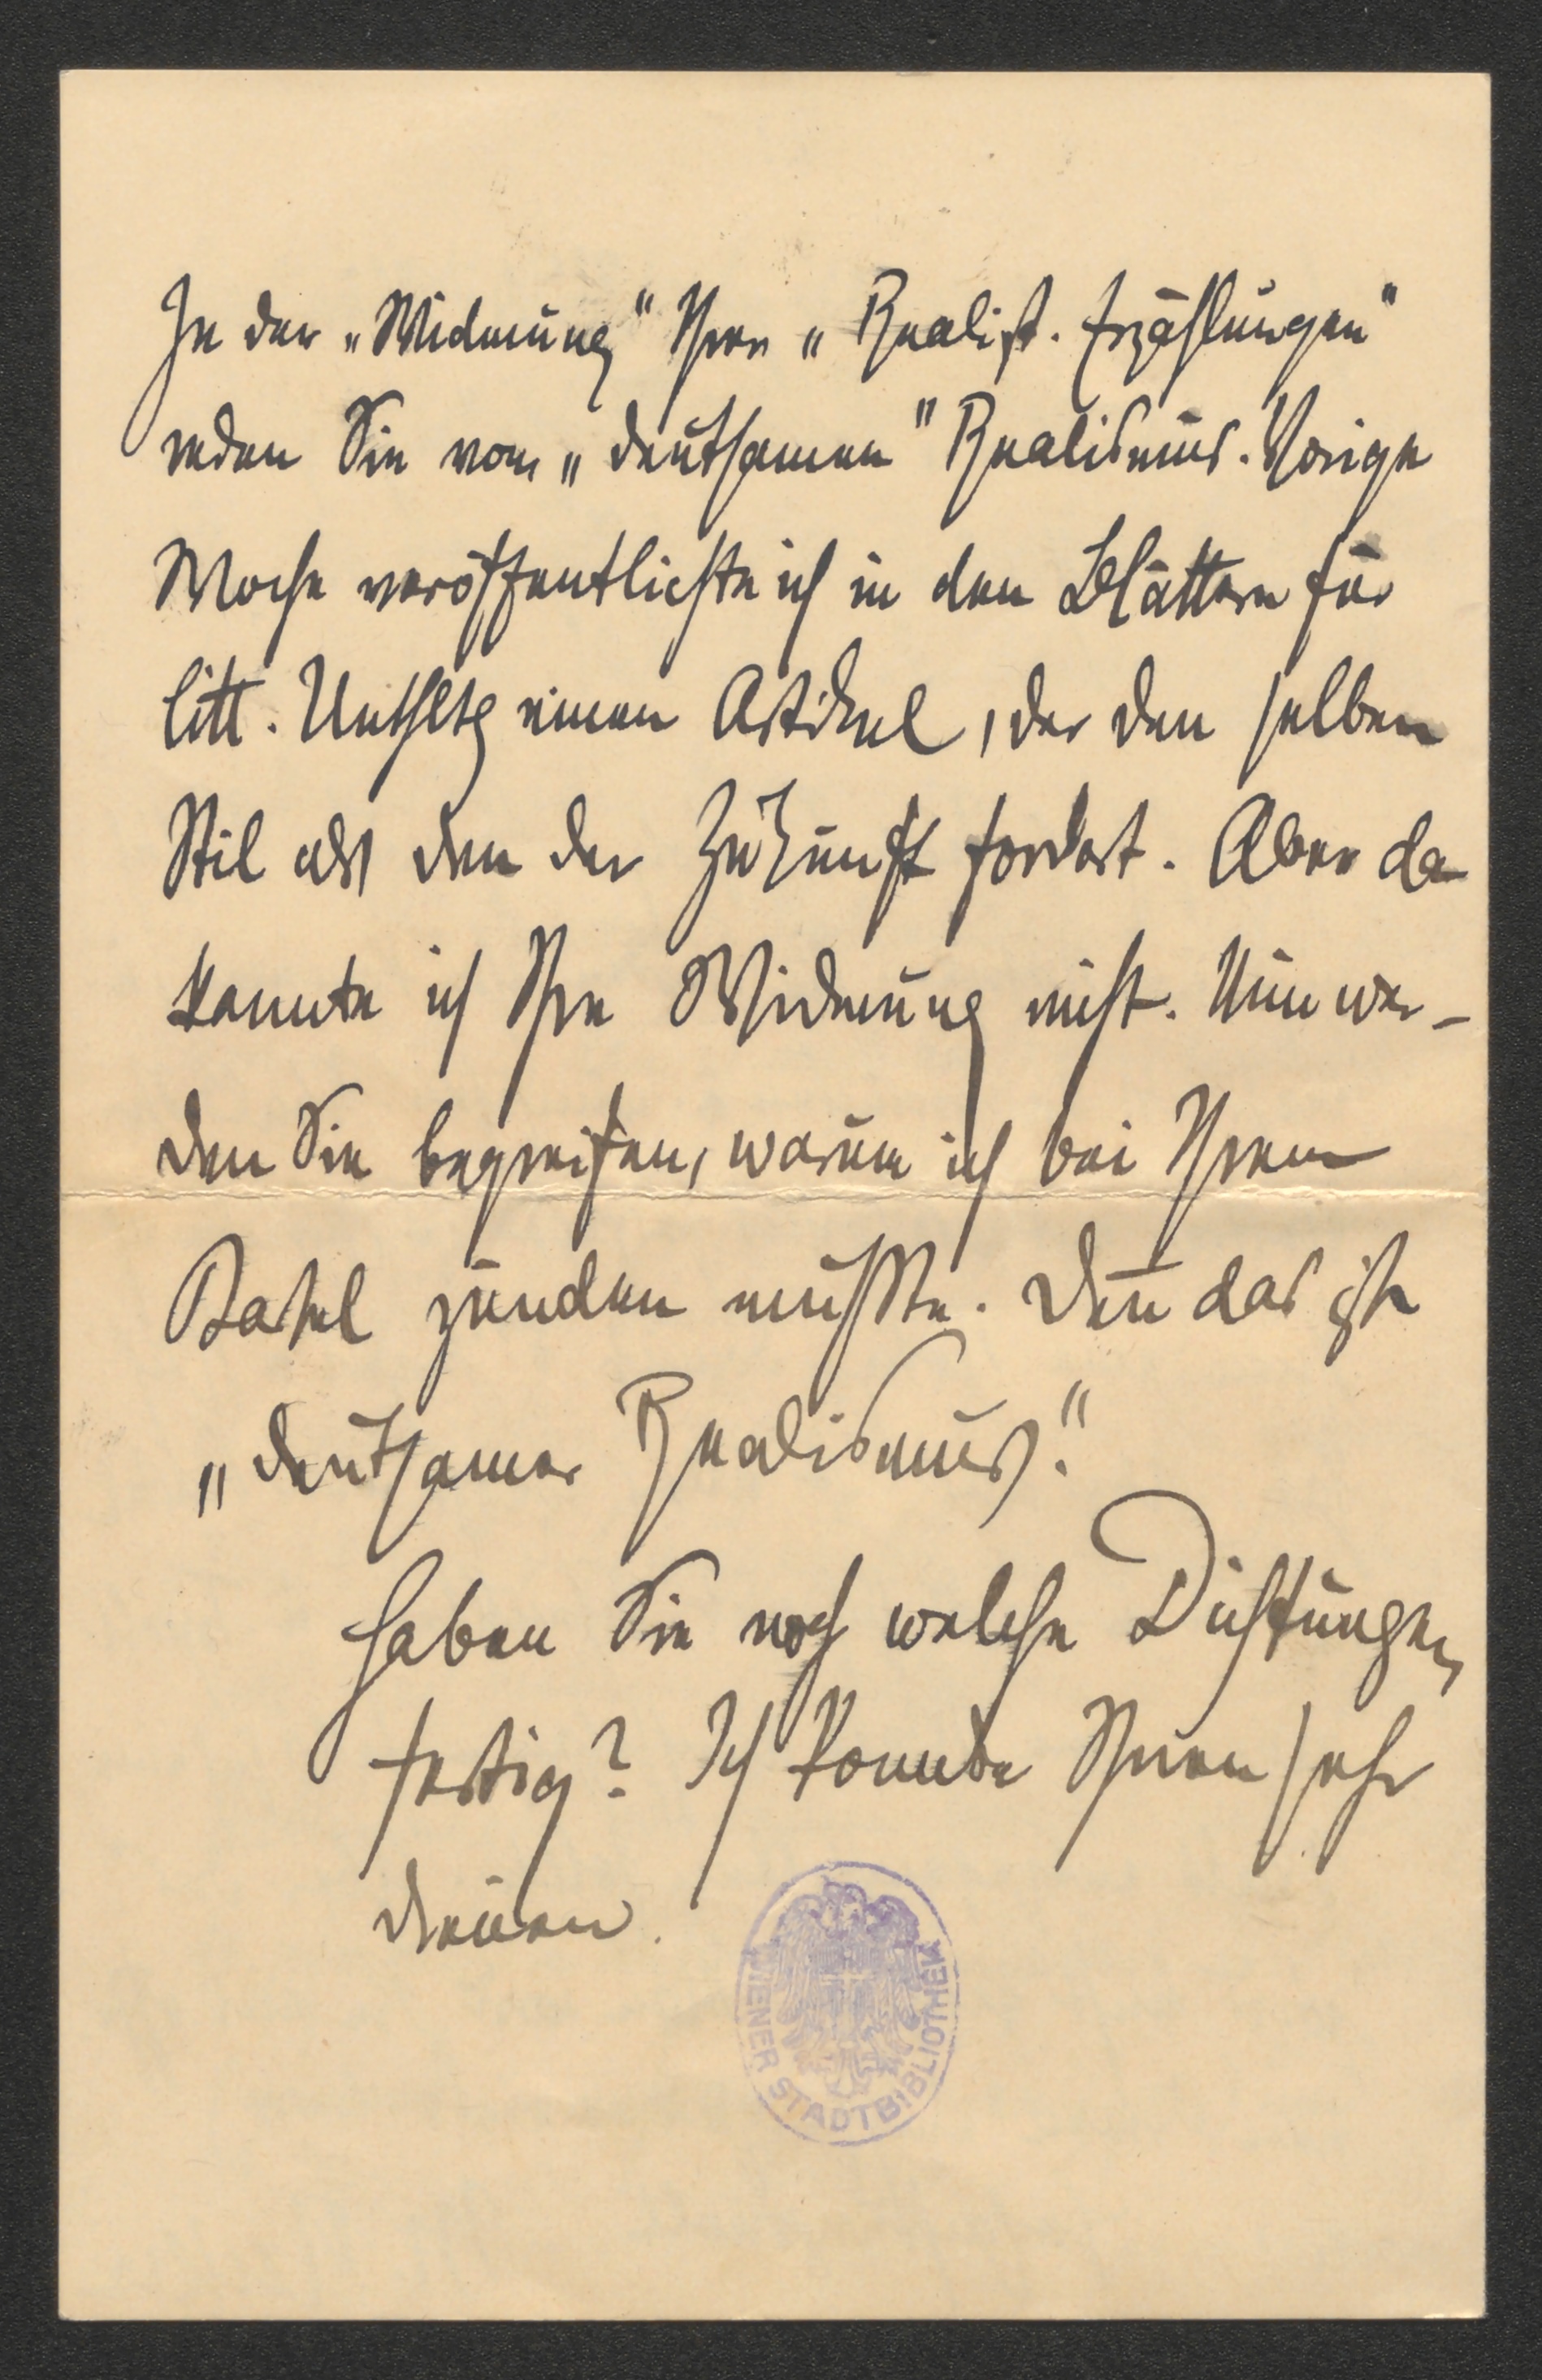 In der „Widmung" Ihrer „Realist. Erzählungen"
reden Sie vom „deutsamen" Realismus. Vorige
Woche veröffentlichte ich in den Blättern für
litt. Unthltg einen Artikel, der den selben
Stil als den der Zukunft fordert. Aber da
kannte ich Ihre Widmung nicht. Nun wer-
den Sie begreifen, warum ich bei Ihrem
zünden mußte. Den̅ das ist
„deutsamer Realismus."
Haben Sie noch welche Dichtungen
fertig? Ich konnte Ihnen sehr
dienen.
WIENER STADTBIBLIOTHEK